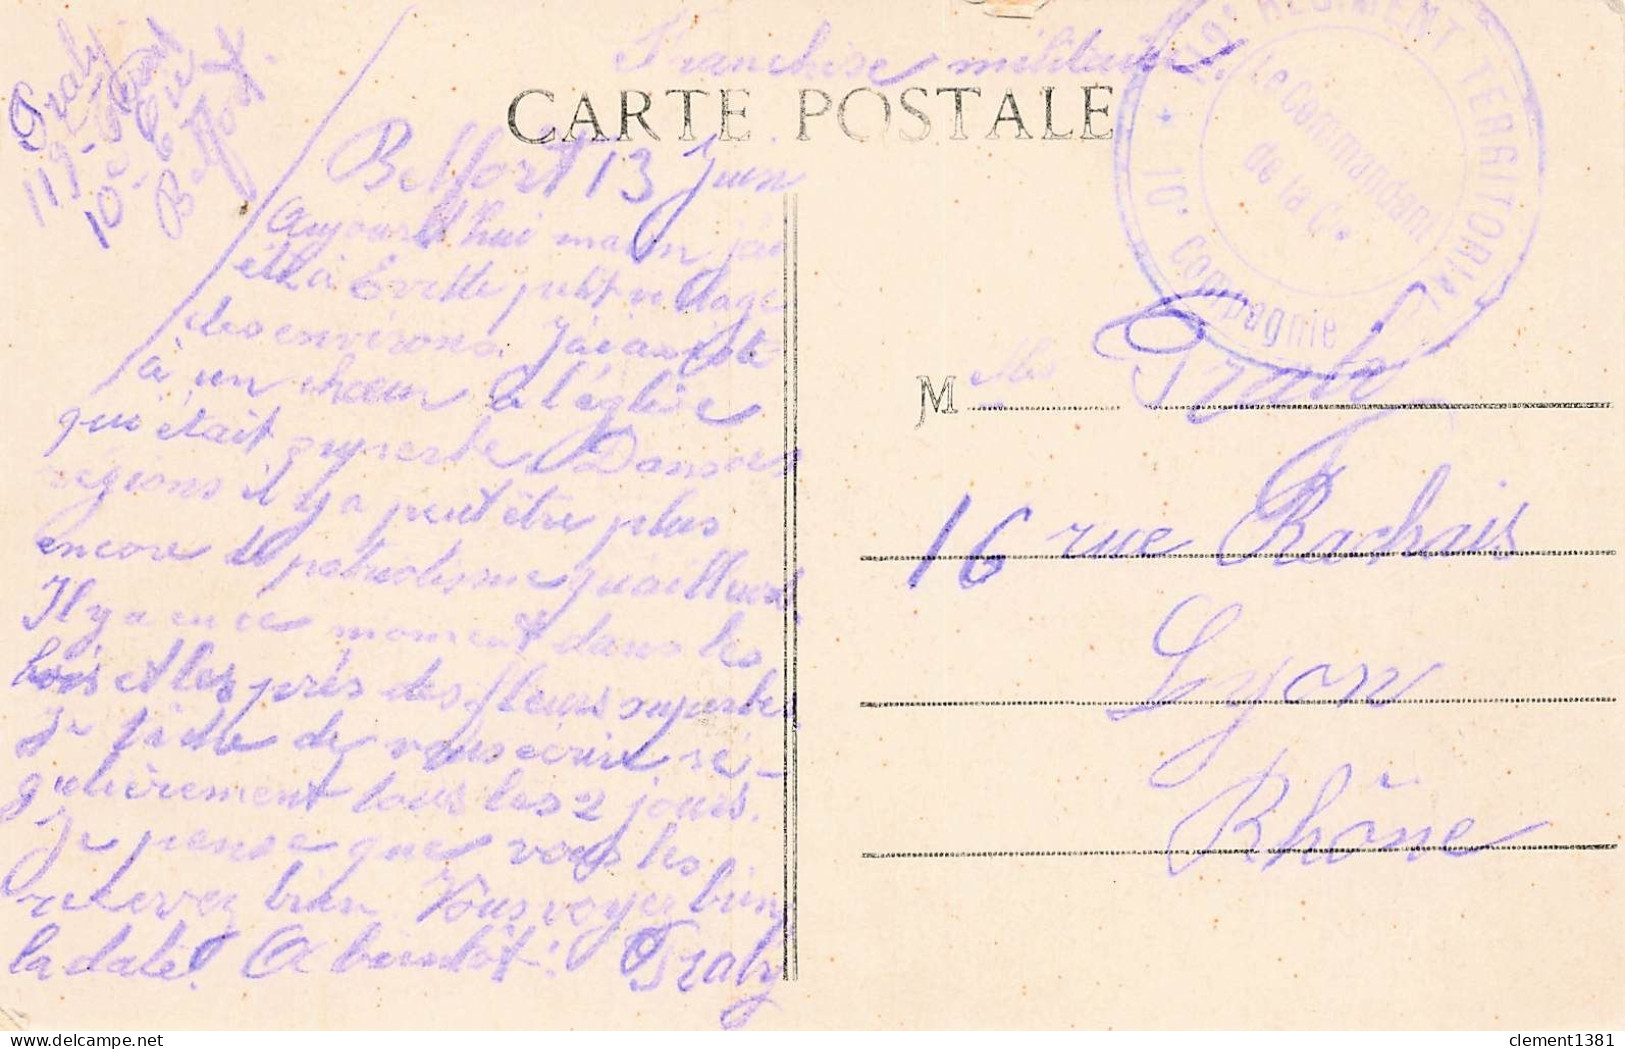 Praly
119e Terral
10e Cie
Belfort.
Franchise militaire
CARTE POSTALE
119e REGIMENT TERRITORIAL
* 10e Compagnie
Le Commandant
de la Cie
Belffort 13 Juin
Aujourd'hui matin j'ai
été à Evette petit village
des environs. J'ai assisté
à un chœur à l'église
qui était superbe Dans ces
régions il y a peut être plus
encore de patriotisme qu'ailleurs
Il y a en ce moment dans les
bois et les prés des fleurs superbes
Je tâche de vous écrire ré-
gulièrement tous les 2 jours.
Je pense que vous les
recevez bien. Vous voyez bien
la date! A bientôt! Praly
M elles Praly
16 rue Rachais
Lyon
Rhône
clement1381